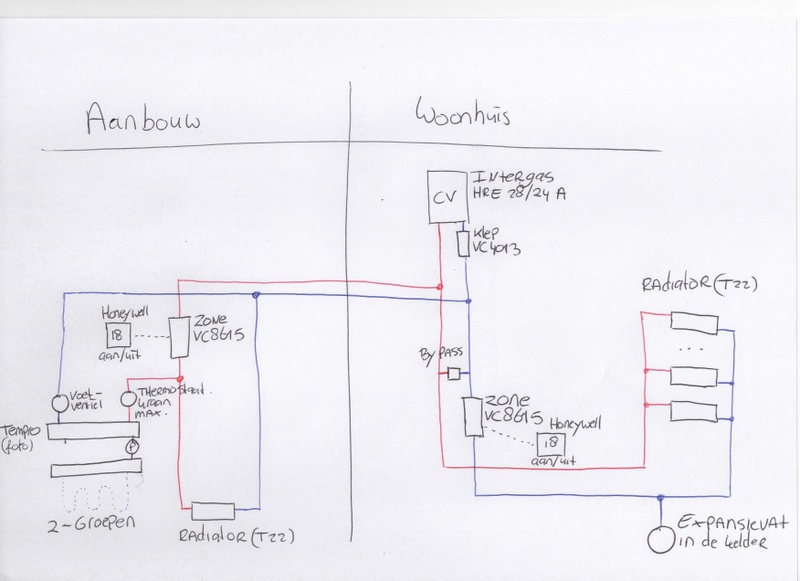 Aanbouw
Woonhuis
CV
Intergas
HRE 28/24 A
Klep
VC4013
Radiator (T22)
...
Honeywell
18
aan/uit
Zone
VC8615
By Pass
Zone
VC8615
Honeywell
18
aan/uit
Voet-
ventiel
Thermostaat.
kraan
max.
Tempro
(foto)
P
2-Groepen
Radiator (T22)
Expansievat
in de kelder